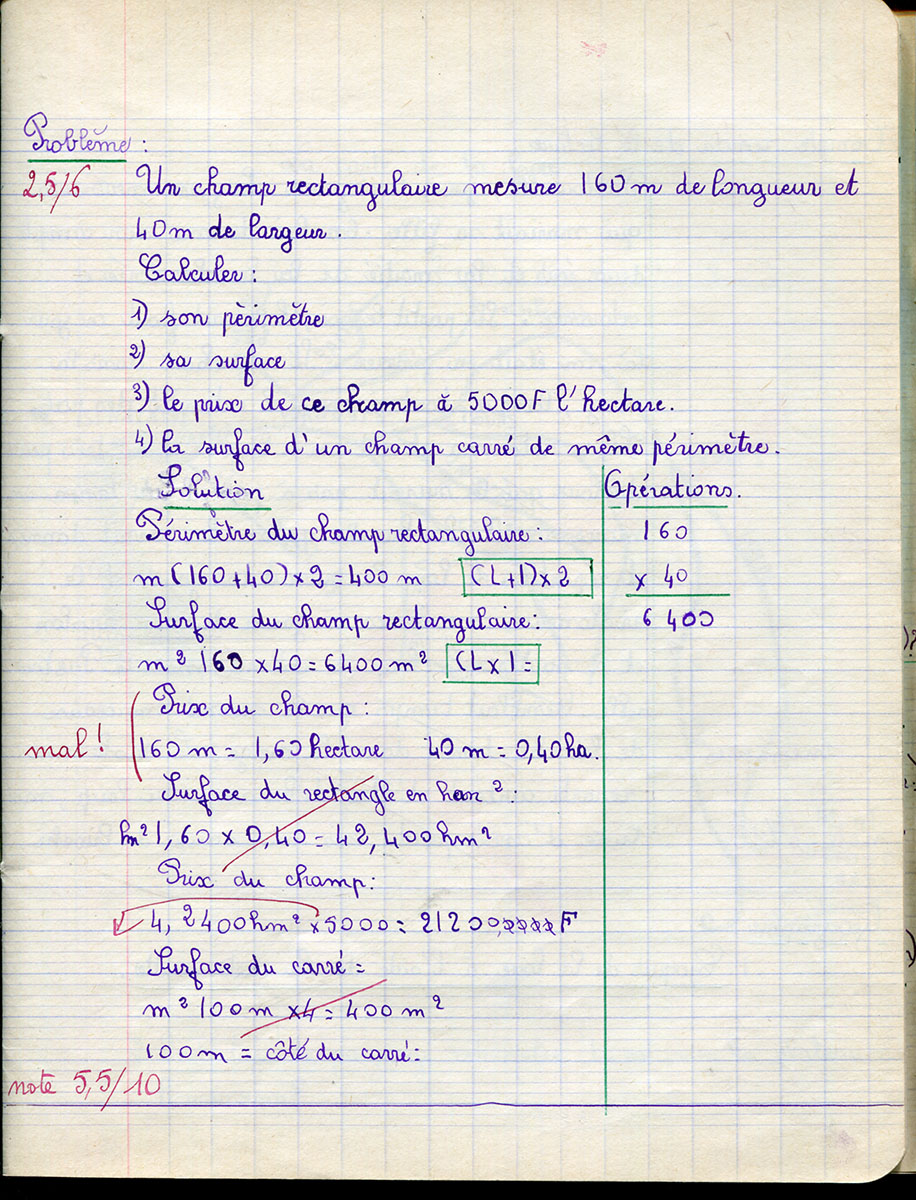 Problème :
2,5/6
Un champ rectangulaire mesure 160 m de longueur et
40 m de largeur.
Calculer :
1) son périmètre
2) sa surface
3) le prix de ce champ à 5000F l'hectare.
4) la surface d'un champ carré de même périmètre.
Solution
Périmètre du champ rectangulaire :
m (160+40) x 2 = 400 m (L+l) x 2
Surface du champ rectangulaire :
m² 160 x 40 = 6400 m² (L x l =
Prix du champ :
mal !
160 m = 1,60 hectare 40 m = 0,40 ha.
Surface du rectangle en hm² :
hm² 1,60 x 0,40 = 42,400 hm²
Prix du champ :
4,2400 hm² x 5000 = 21200,xxxx F
Surface du carré =
m² 100 m x 4 = 400 m²
100 m = côté du carré :
note 5,5/10
Opérations.
160
x 40
6 400